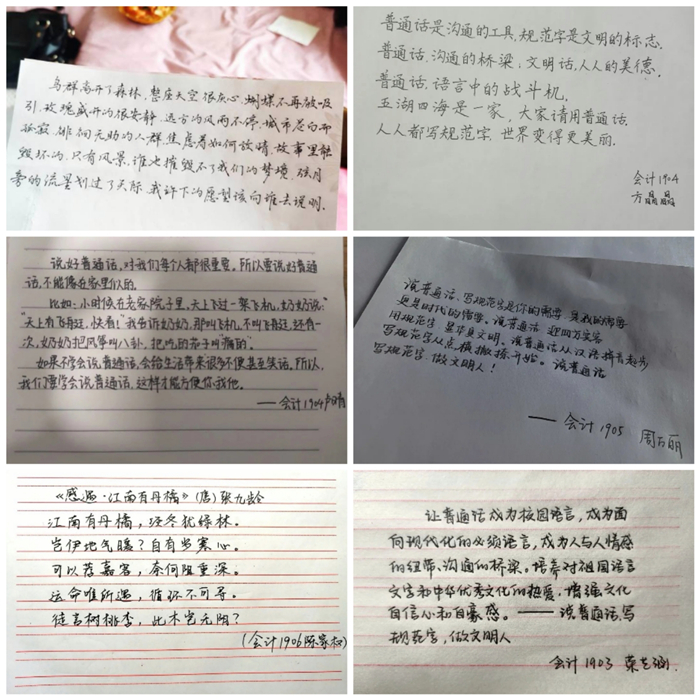 鸟群离开了森林,整座天空很灰心,蝴蝶不再被吸
引,玫瑰盛开的很安静,远方的风雨不停,城市苍白而
孤寂,徘徊无助的人群,焦虑着如何放晴,故事里能
毁坏的,只有风景,谁也摧毁不了我们的梦境,弦月
旁的流星划过了天际,我许下的愿望该向谁去说明.
普通话是沟通的工具,规范字是文明的标志.
普通话,沟通的桥梁;文明话,人人的美德.
普通话,语言中的战斗机,
五湖四海是一家,大家请用普通话.
人人都写规范字,世界变得更美丽.
会计1904
方晶晶
说好普通话,对我们每个人都很重要。所以要说好普通
话,不能像在家里似的.
比如:小时候在老家院子里,天上飞过一架飞机,奶奶说:“
天上有飞,快看!”我告诉奶奶,那叫飞机,不叫飞,还有一
次,奶奶把风筝叫八卦,把吃的茄子叫“瘸的”.
如果不学会说普通话,会给生活带来很多不便甚至笑话.所以,
我们要学会说普通话,这样才能方便你我他。
——会计1904
说普通话、写规范字是你的需要,是我的需要
更是时代的需要。说普通话 迎四方宾客
用规范字 显华夏文明。说普通话从汉语拼音起步
写规范字从点横撇捺开始。说普通话
写规范字,做文明人!
—— 会计1905 周丽
《感遇·江南有丹橘》(唐)张九龄
江南有丹橘,经冬犹绿林.
岂伊地气暖?自有岁寒心.
可以荐嘉客,奈何阻重深。
运命唯所遇,循环不可寻.
徒言树桃李,此木岂无阴?
(会计1906陈家)
让普通话成为校园语言,成为面
向现代化的必须语言,成为人与人情感
的纽带、沟通的桥梁。培养对祖国语言
文字和中华优秀文化的热爱,增强文化
自信心和自豪感。——说普通话,写
规范字,做文明人
会计1903 荣涵